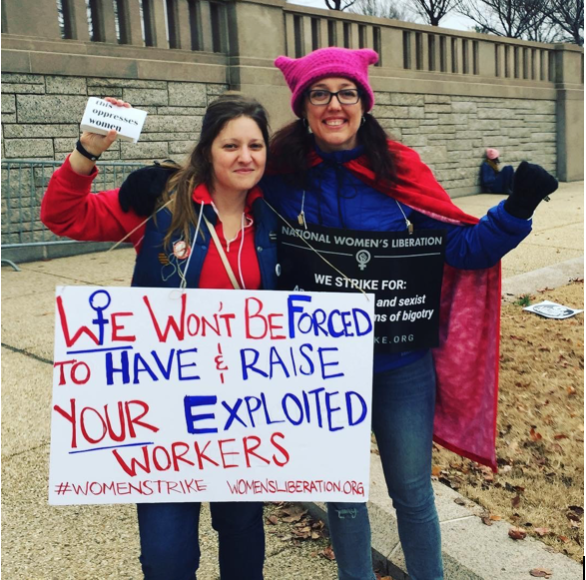 this
oppresses
women
NATIONAL WOMEN'S LIBERATION
WE STRIKE FOR:
and sexist
ns of bigotry
KE.ORG
WE WON'T BE FORCED
TO HAVE & RAISE
YOUR EXPLOITED
WORKERS
#WOMENSTRIKE WOMENSLIBERATION.ORG